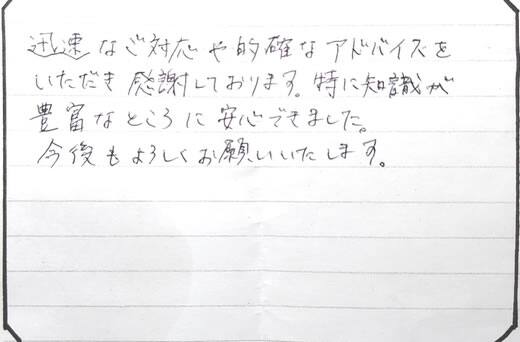 迅速なご対応や的確なアドバイスを
いただき感謝しております。特に知識が
豊富なところに安心できました。
今後もよろしくお願いいたします。